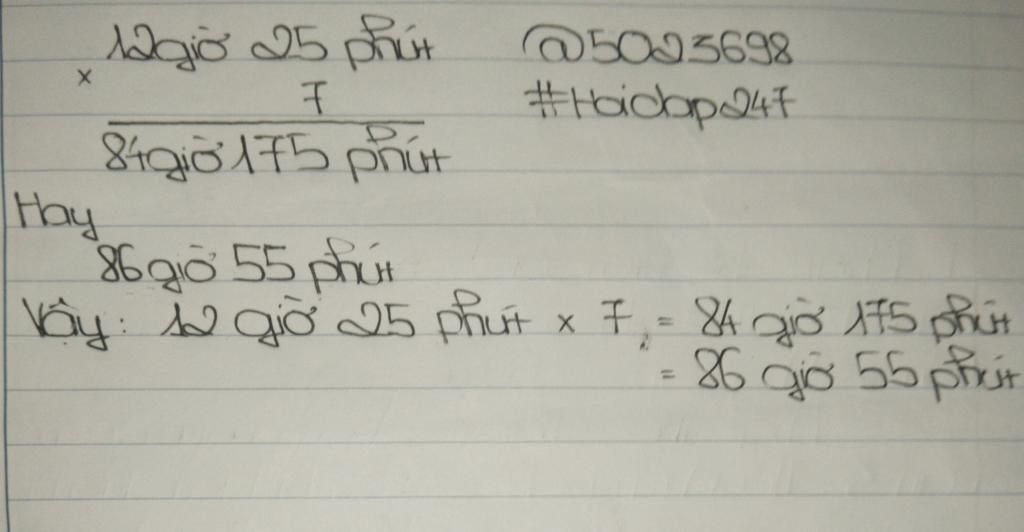 12 giờ 25 phút @5023698
x
7 #Hoidap247
84 giờ 175 phút
Hay
86 giờ 55 phút
Vậy: 12 giờ 25 phút x 7 = 84 giờ 175 phút
= 86 giờ 55 phút